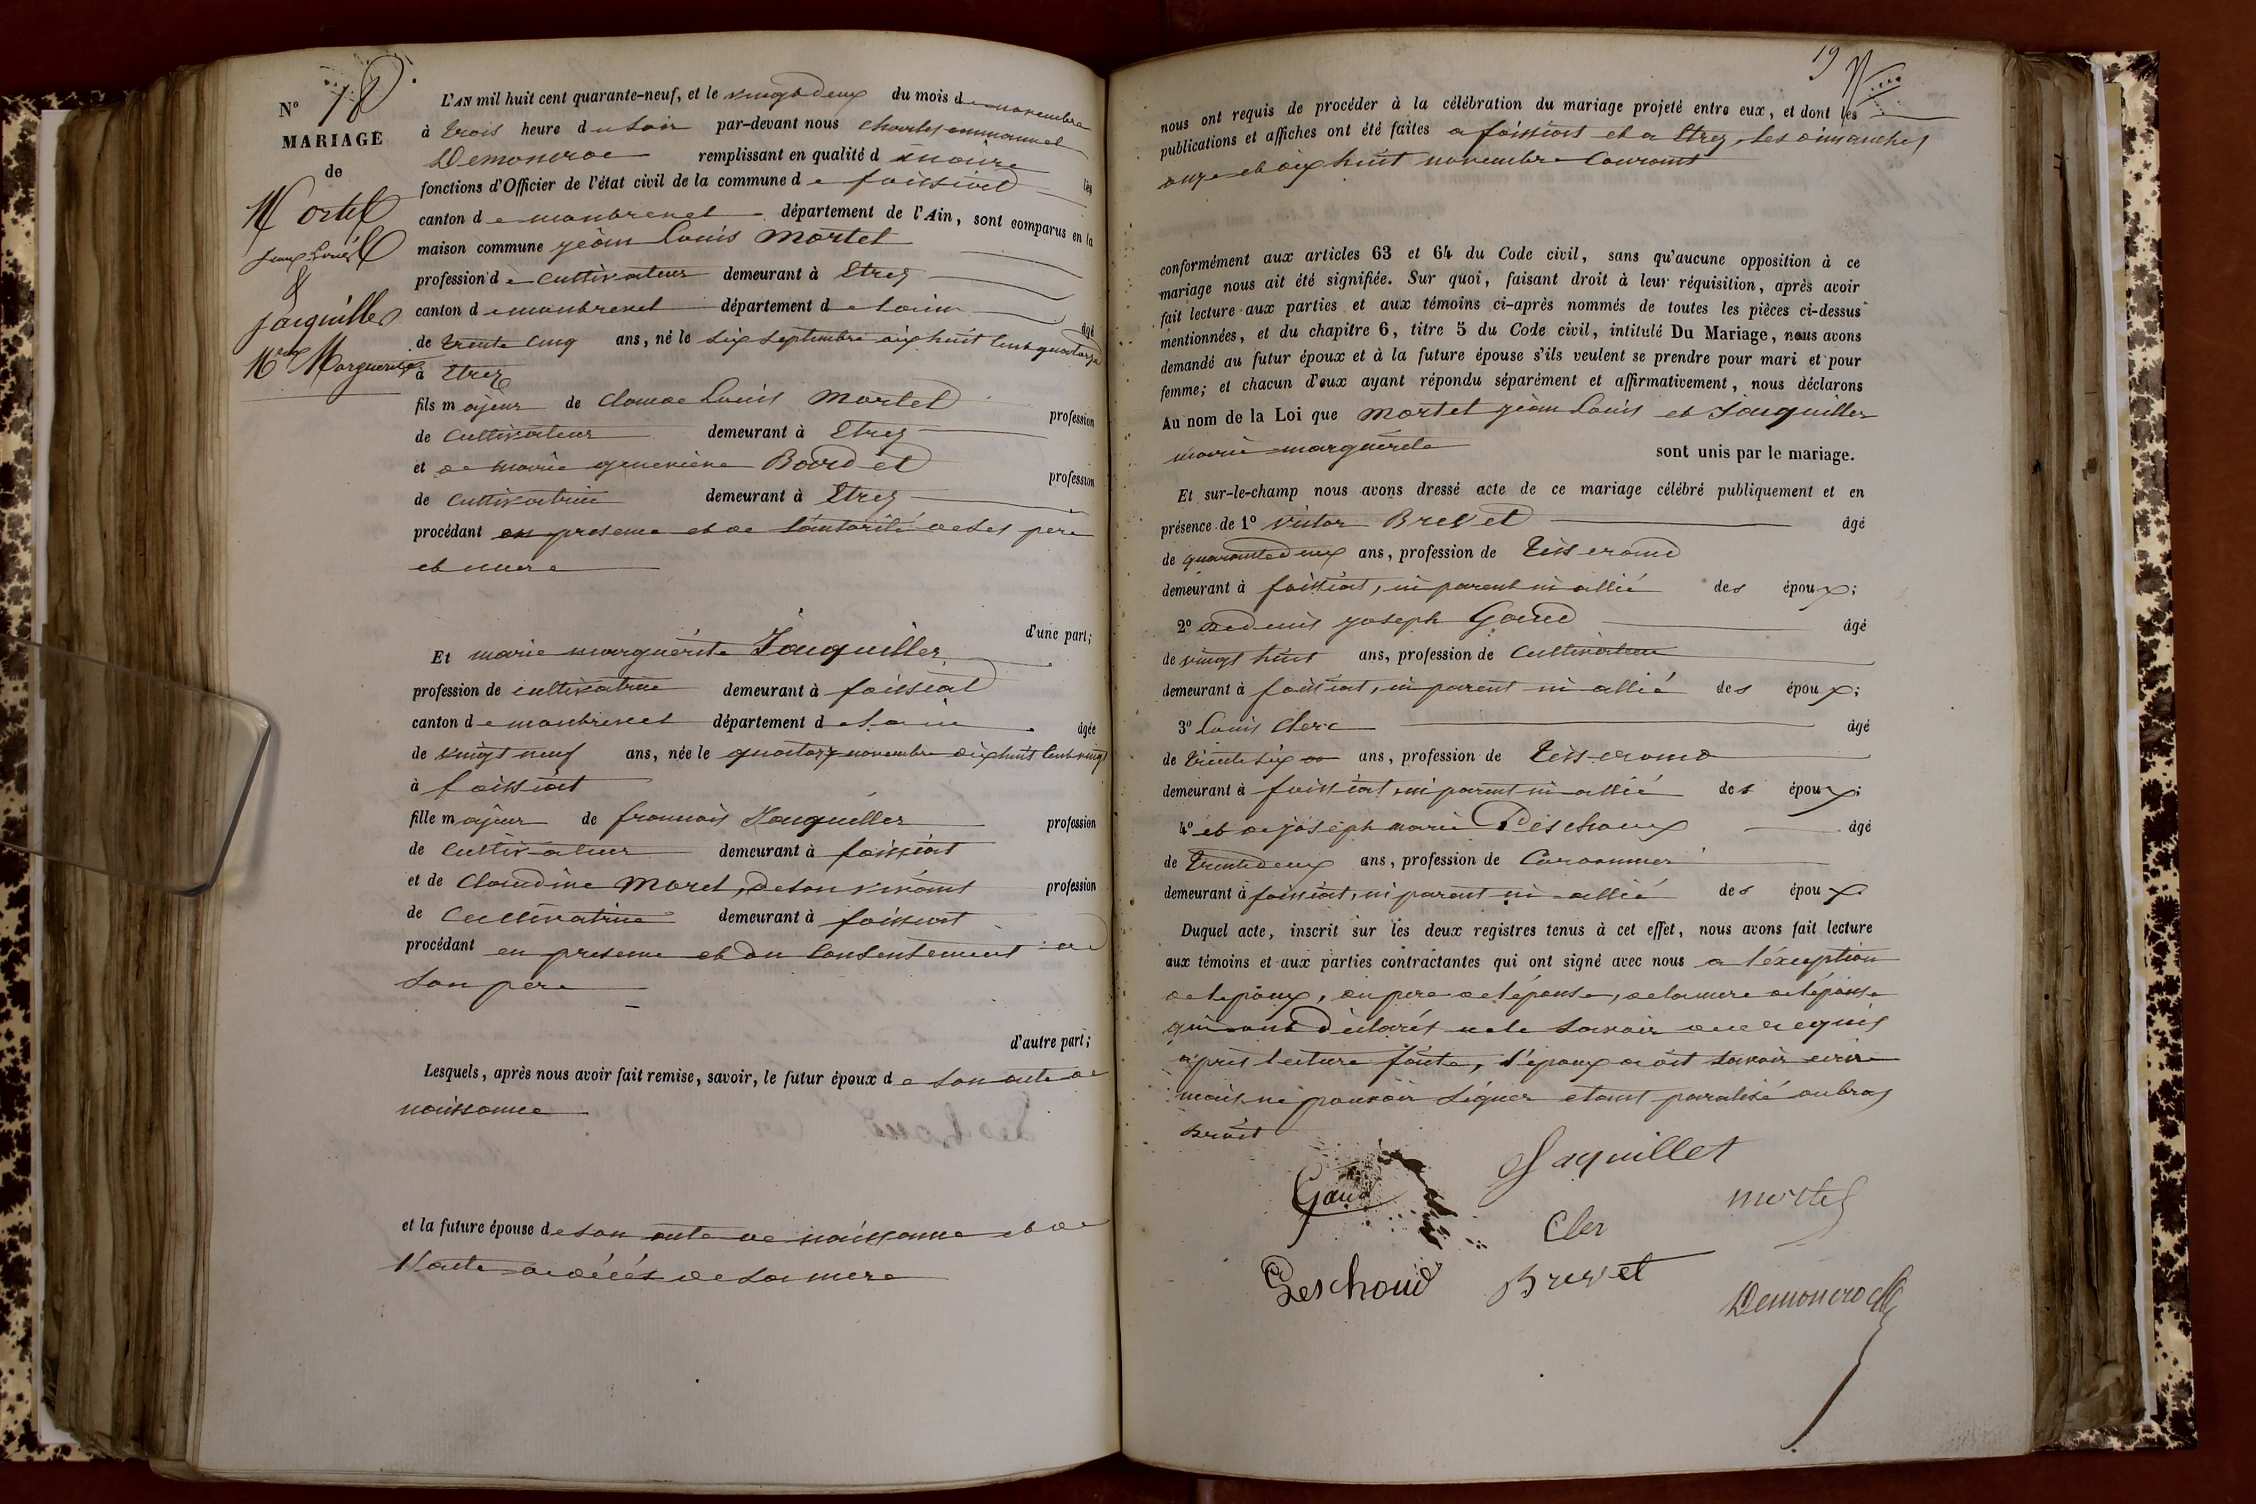 N° 18
MARIAGE
de
Mortel
jean Louis
&
jaquiller
Mie Marguerite
L'AN mil huit cent quarante-neuf, et le vingt deux du mois de novembre
à trois heure du soir par-devant nous charles emmanuel
Demoncroc remplissant en qualité d maire les
fonctions d'Officier de l'état civil de la commune de foissiat
canton de montrevel département de l'Ain, sont comparus en la
maison commune jéan Louis mortel
profession de cultivateur demeurant à Etrez
canton de montrevel département de lain âgé
de trente cinq ans, né le six septembre dix huit cent quatorze
à Etrez
fils majeur de claude Louis mortel profession
de cultivateur demeurant à Etrez
et de marie genevieve Boordet profession
de cultivatrice demeurant à Etrez
procédant en presence et de l'autorité de ses pere
et mere
d'une part;
Et marie marguérite Jaquiller
profession de cultivatrice demeurant à foissiat
canton de montrevel département de lain âgée
de vingt neuf ans, née le quatorze novembre dix huit cent vingt
à foissiat
fille majeur de francois Jaquiller profession
de cultivateur demeurant à foissiat
et de claudine Morel, de son vivant profession
de cultivatrice demeurant à foissiat
procédant en presence et du consentement de
son pere
d'autre part;
Lesquels, après nous avoir fait remise, savoir, le futur époux de son acte de
naissance
et la future épouse de son acte de naissance et de
l'acte de décès de sa mere
19
nous ont requis de procéder à la célébration du mariage projeté entre eux, et dont les
publications et affiches ont été faites a foissiat et a Etrez, les dimanches
onze et dix huit novembre courant
conformément aux articles 63 et 64 du Code civil, sans qu'aucune opposition à ce
mariage nous ait été signifiée. Sur quoi, faisant droit à leur réquisition, après avoir
fait lecture aux parties et aux témoins ci-après nommés de toutes les pièces ci-dessus
mentionnées, et du chapitre 6, titre 5 du Code civil, intitulé Du Mariage, nous avons
demandé au futur époux et à la future épouse s'ils veulent se prendre pour mari et pour
femme; et chacun d'eux ayant répondu séparément et affirmativement, nous déclarons
Au nom de la Loi que mortel jéan Louis et Jaquiller
marie marguerite sont unis par le mariage.
Et sur-le-champ nous avons dressé acte de ce mariage célébré publiquement et en
présence de 1° victor Brevet âgé
de quarante deux ans, profession de tisserand
demeurant à foissiat, ni parent ni allié des époux;
2° de denis joseph Gaud âgé
de vingt huit ans, profession de cultivateur
demeurant à foissiat, ni parent ni allié des époux;
3° Louis clerc âgé
de trente six ans, profession de tisserand
demeurant à foissiat, ni parent ni allié des époux;
4° et de joseph marie Péschoux âgé
de trente deux ans, profession de Cordonnier
demeurant à foissiat, ni parent ni allié des époux
Duquel acte, inscrit sur les deux registres tenus à cet effet, nous avons fait lecture
aux témoins et aux parties contractantes qui ont signé avec nous a l'exception
de l'epoux, du pere de l'épouse, de la mere de l'épouse
qui ont déclarés ne le savoir de ce requis
après lecture faite, l'époux a dit savoir ecrire
mais ne pouvoir signer etant paralisé du bras
droit
Gaud
Jaquillet
mortel
Cler
Peschoud
Brevet
Demoncroc